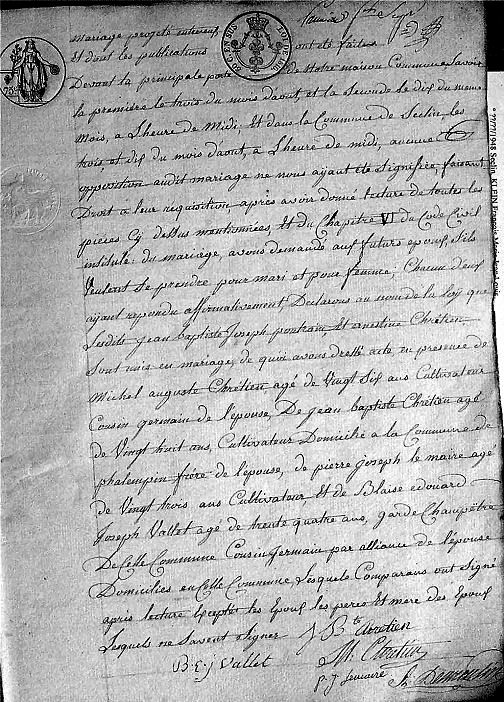 mariage projeté entr'eux
et dont les publications ont été faites
Devant la principale porte de Notre maison Commune Savoir
la premiere le trois du mois d'aout, et la seconde le dix du meme
mois, a L'heure de Midi, Et dans la Commune de Seclin, les
trois et dix du mois d'aout, a L'heure de midi, aucune
opposition audit mariage ne nous ayant été Signifiée, faisant
Droit a leur requisition, après avoir donné lecture de toutes les
pieces Cy dessus mentionnées, Et du Chapitre VI du Code Civil
intitulé: du mariage, avons demandé aux futurs epoux s'ils
Veulent Se prendre pour mari et pour femme; Chacun d'eux
ayant repondu affirmativement, Declarons au nom de la loy que
Lesdits jean baptiste Joseph Et ernestine Chrétien
Sont unis en mariage, de quoi avons dressé acte, en presence de
Michel auguste Chrétien agé de Vingt Six ans Cultivateur
Cousin germain de l'epouse, De jean baptiste Chrétien agé
de Vingt huit ans, Cultivateur Domicilié a la Commune de
phalempin frère de lepouse, de pierre joseph le maire agé
de Vingt trois ans Cultivateur, Et de Blaise edouard
Joseph Vallet agé de trente quatre ans, garde Champêtre
De Cette Commune Cousin Germain par alliance de l'epouse
Domiciliés en Cette Commune, Lesquels Comparans ont Signé
après lecture Excepté les Epoux les peres Et mere des Epoux
Lesquels ne Savent Signer J Bte Chretien
B. E. j Vallet M. Chretien
p. J. Lemaire